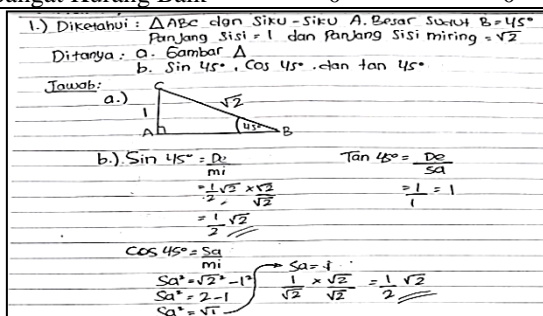 1.) Diketahui : △ABC dgn Siku-Siku A. Besar Sudut B = 45°
Panjang Sisi = 1 dan Panjang Sisi miring = √2
Ditanya : a. Gambar △
b. Sin 45°, Cos 45° .dan tan 45°
Jawab:
a.) C
1 √2
A 45° B
b.) Sin 45° = De/mi
= 1/2 √2 × √2/√2
= 1/2 √2
Tan 45° = De/sa
= 1/1 = 1
Cos 45° = Sa/mi
Sa² = √2² - 1²
Sa² = 2 - 1
Sa² = √1
Sa = 1
1/√2 × √2/√2 = 1/2 √2